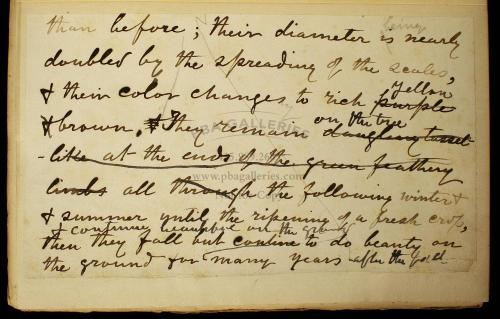 being
than before; their diameter is nearly
doubled by the spreading of the scales,
yellow
& their color changes to rich purple
on the tree
& brown. & They remain dangling tassel
-like at the ends of the green feathery
limbs all through the following winter &
& summer until the ripening of a fresh crop,
& continue on the ground
then they fall but continue to do beauty on
the ground for many years after the
PBA GALLERIES
www.pbagalleries.com